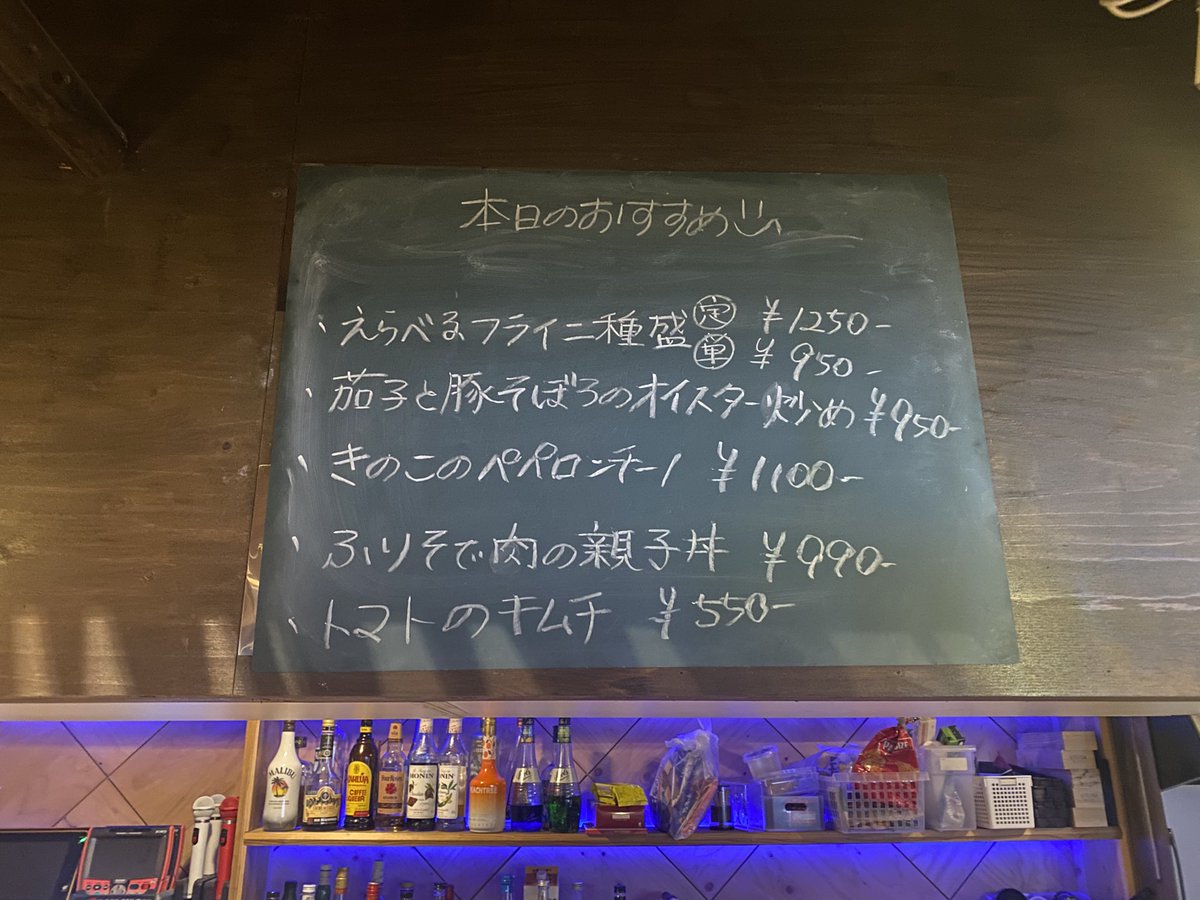 本日のおすすめ
、えらべるフライ二種盛 定 ¥1250-
単 ¥950-
、茄子と豚そぼろのオイスター炒め ¥950-
、きのこのペペロンチーノ ¥1100-
、ふりそで肉の親子丼 ¥990-
、トマトのキムチ ¥550-
MALIBU
KAHLUA
Four Roses
MONIN